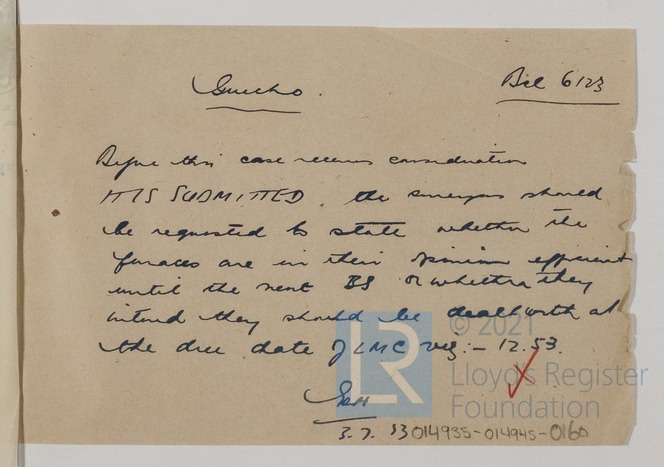 Bel 6123
Before this case receives consideration
IT IS SUBMITTED the surveyors should
be requested to state whether the
furnaces are in their opinion efficient
until the next BS or whether they
intend they should be dealt with at
the due date of LMC viz:- 12.53.
3.7.53 014935-014945-0160
LR
© 2021
Lloyd's Register
Foundation